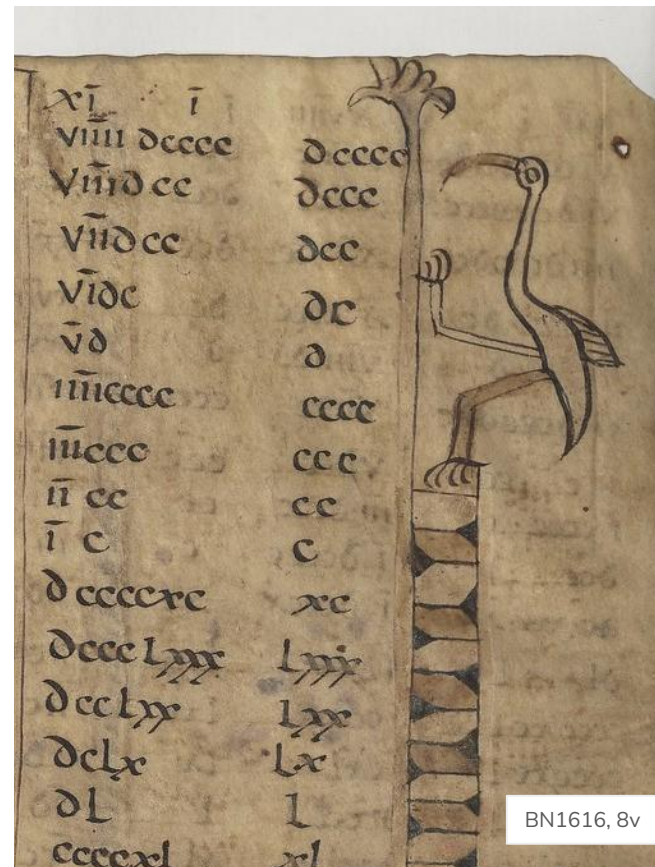 xi̅ i̅
vi̅i̅i̅i̅ dcccc dcccc
vi̅i̅i̅dcc dccc
vi̅i̅dcc dcc
vi̅dc dc
v̅d d
i̅i̅i̅i̅cccc cccc
i̅i̅i̅ccc ccc
i̅i̅ cc cc
i̅ c c
dccccxc xc
dccclxxx lxxx
dcclxx lxx
dclx lx
dl l
ccccxl xl
BN1616, 8v